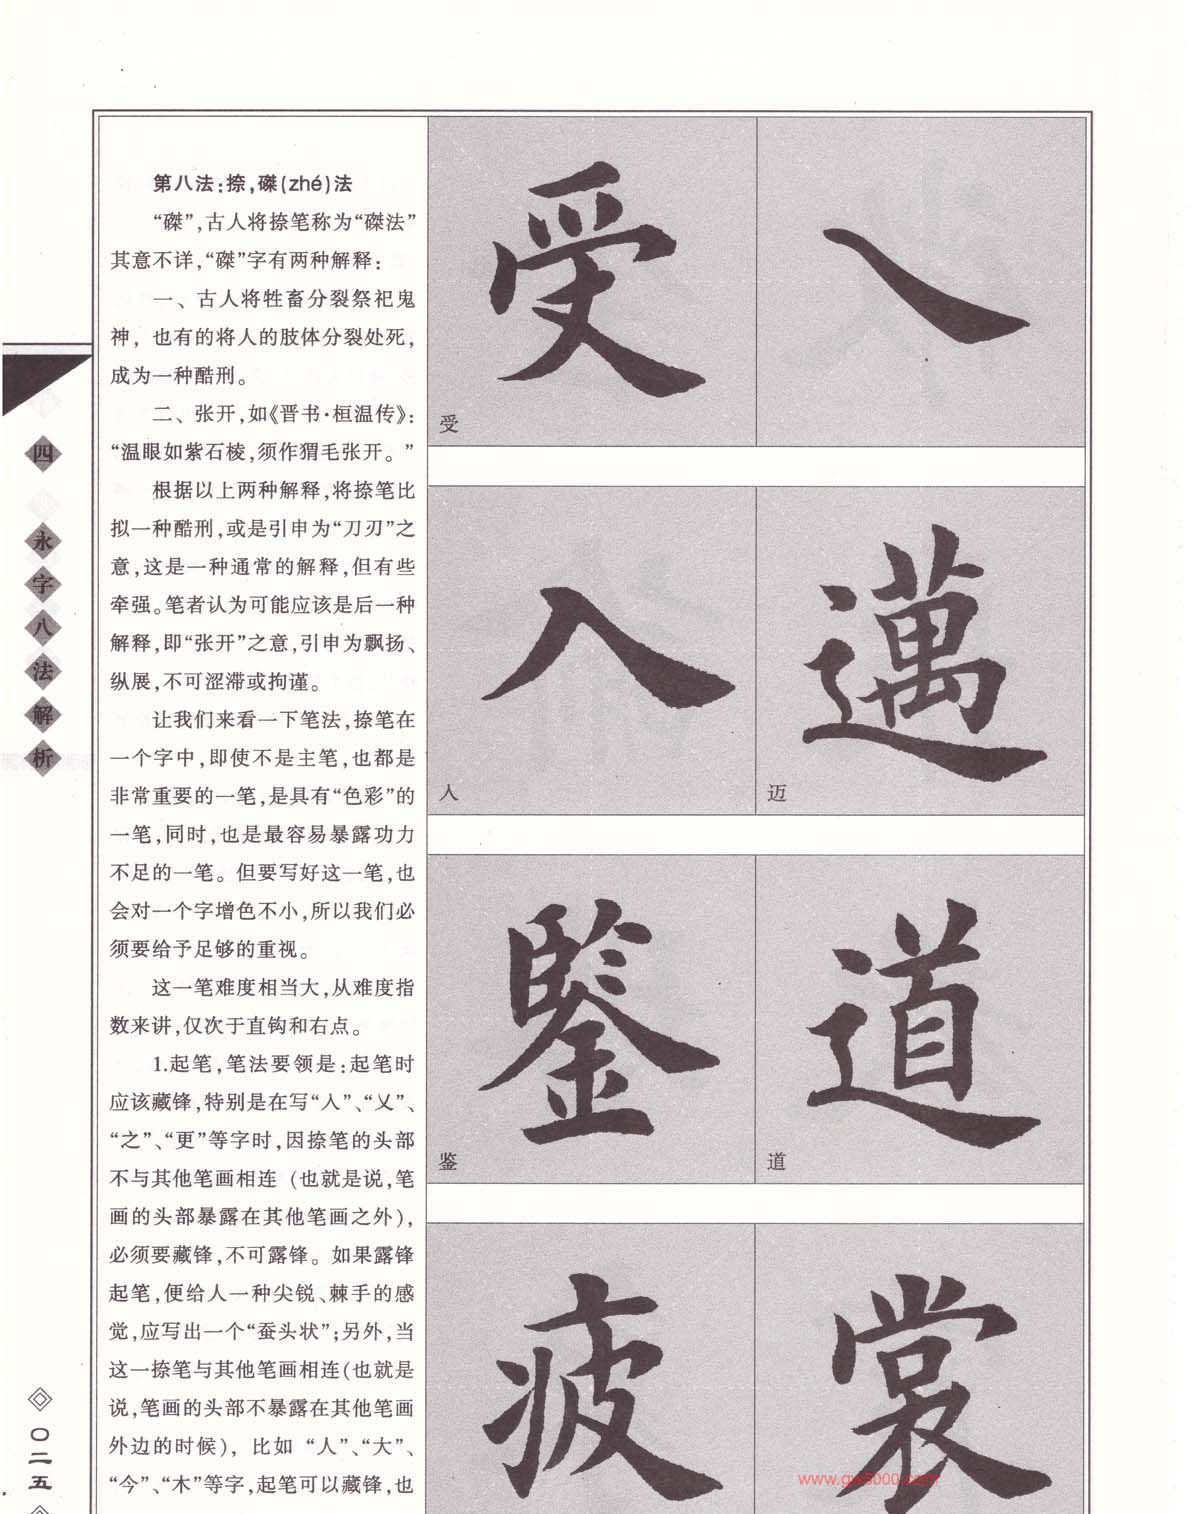 第八法：捺，磔（zhé）法
“磔”，古人将捺笔称为“磔法”
其意不详，“磔”字有两种解释：
一、古人将牲畜分裂祭祀鬼
神，也有的将人的肢体分裂处死，
成为一种酷刑。
二、张开，如《晋书·桓温传》：
“温眼如紫石棱，须作猬毛张开。”
根据以上两种解释，将捺笔比
拟一种酷刑，或是引申为“刀刃”之
意，这是一种通常的解释，但有些
牵强。笔者认为可能应该是后一种
解释，即“张开”之意，引申为飘扬、
纵展，不可涩滞或拘谨。
让我们来看一下笔法，捺笔在
一个字中，即使不是主笔，也都是
非常重要的一笔，是具有“色彩”的
一笔，同时，也是最容易暴露功力
不足的一笔。但要写好这一笔，也
会对一个字增色不小，所以我们必
须要给予足够的重视。
这一笔难度相当大，从难度指
数来讲，仅次于直钩和右点。
1.起笔，笔法要领是：起笔时
应该藏锋，特别是在写“入”、“乂”、
“之”、“更”等字时，因捺笔的头部
不与其他笔画相连（也就是说，笔
画的头部暴露在其他笔画之外），
必须要藏锋，不可露锋。如果露锋
起笔，便给人一种尖锐、棘手的感
觉，应写出一个“蚕头状”；另外，当
这一捺笔与其他笔画相连（也就是
说，笔画的头部不暴露在其他笔画
外边的时候），比如“人”、“大”、
“今”、“木”等字，起笔可以藏锋，也
受
受
人
人
邁
迈
鑒
鉴
道
道
疲
裳
四
永字八法解析
〇二五
www.gw5000.com